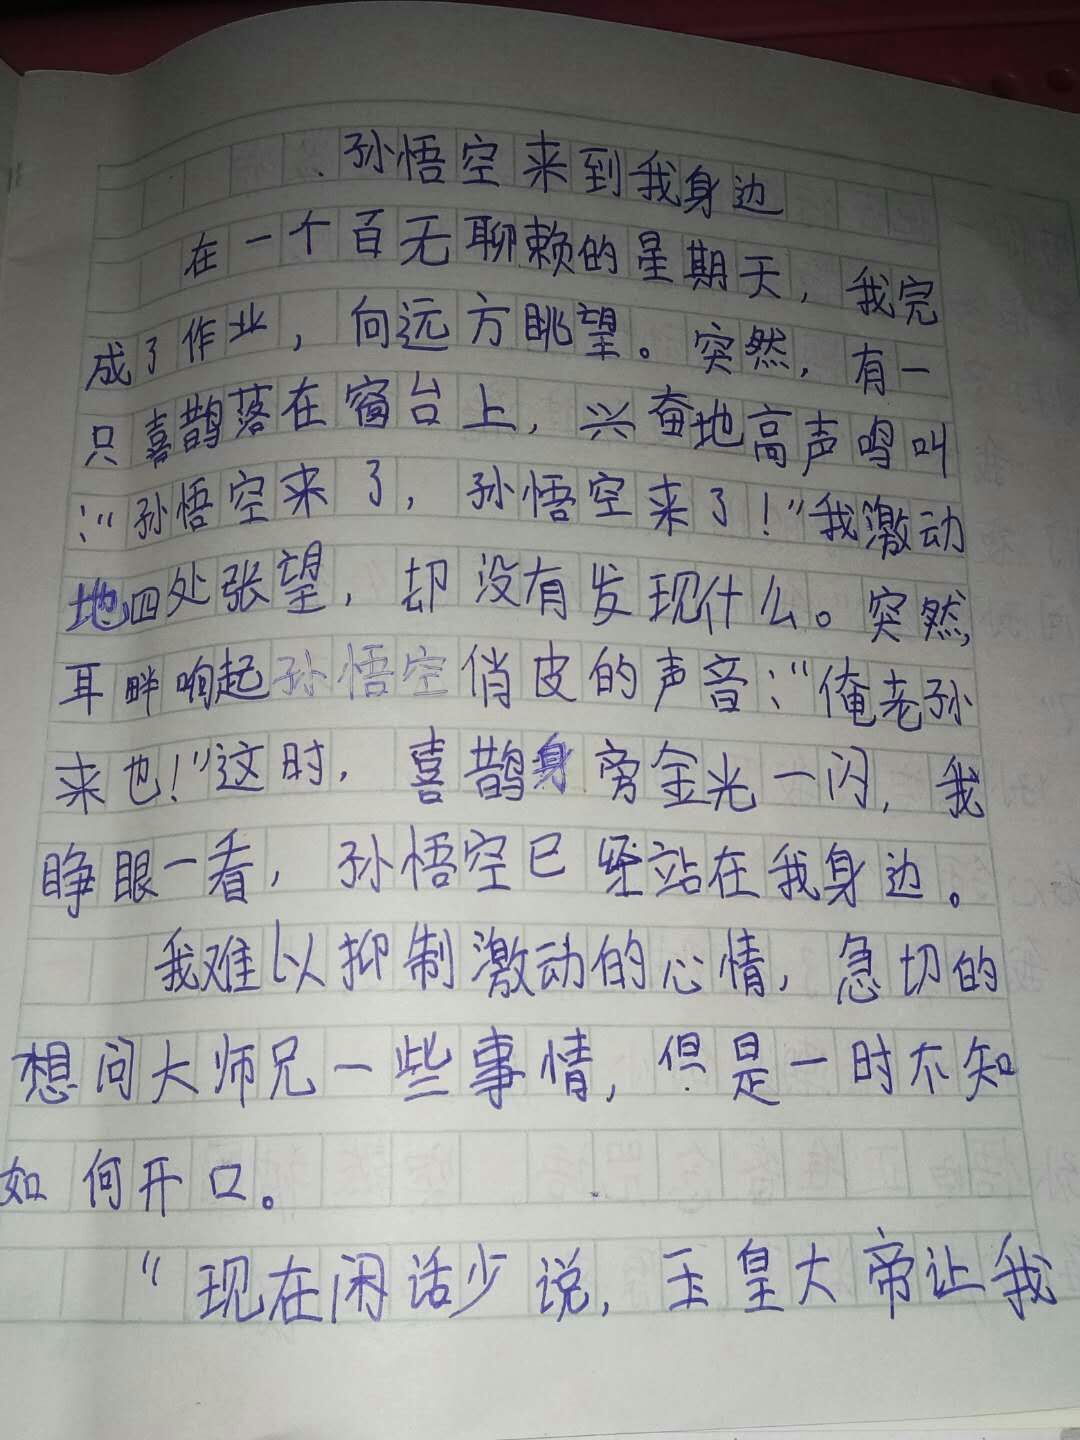 孙悟空来到我身边
在一个百无聊赖的星期天，我完
成了作业，向远方眺望。突然，有一
只喜鹊落在窗台上，兴奋地高声鸣叫
：“孙悟空来了，孙悟空来了！”我激动
地四处张望，却没有发现什么。突然，
耳畔响起孙悟空俏皮的声音：“俺老孙
来也！”这时，喜鹊身旁金光一闪，我
睁眼一看，孙悟空已经站在我身边。
我难以抑制激动的心情，急切的
想问大师兄一些事情，但是一时不知
如何开口。
“现在闲话少说，玉皇大帝让我